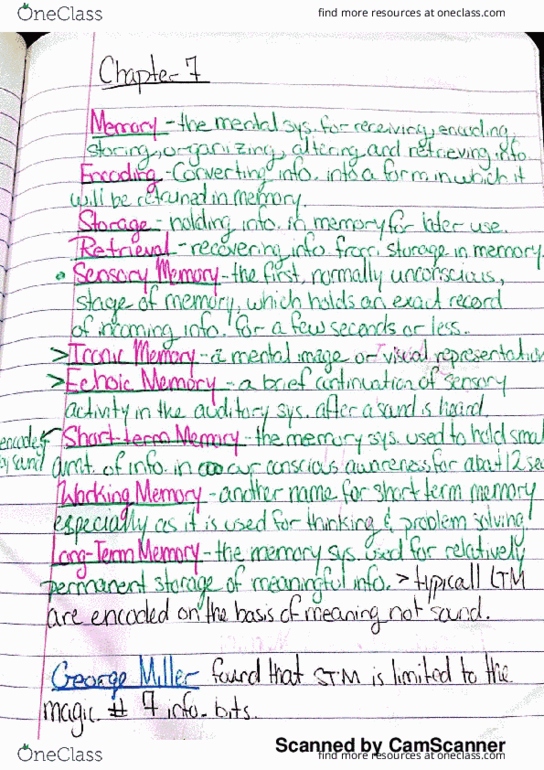 OneClass
find more resources at oneclass.com
Chapter 7
Memory - the mental sys. for receiving, encoding,
storing, organizing, altering and retrieving info.
Encoding - Converting info. into a form in which it
will be retained in memory.
Storage - holding info. in memory for later use.
Retrieval - recovering info from storage in memory.
• Sensory Memory - the first, normally unconscious,
stage of memory, which holds an exact record
of incoming info. for a few seconds or less.
> Iconic Memory - a mental image or visual representation
> Echoic Memory - a brief continuation of sensory
activity in the auditory sys. after a sound is heard.
encodes by sound
Short-term Memory - the memory sys. used to hold small
amt. of info. in our conscious awareness for about 12 sec
Working Memory - another name for short term memory
especially as it is used for thinking & problem solving
Long-Term Memory - the memory sys. used for relatively
permanent storage of meaningful info. > typicall LTM
are encoded on the basis of meaning not sound.
George Miller found that STM is limited to the
magic # 7 info. bits.
Scanned by CamScanner
OneClass
find more resources at oneclass.com